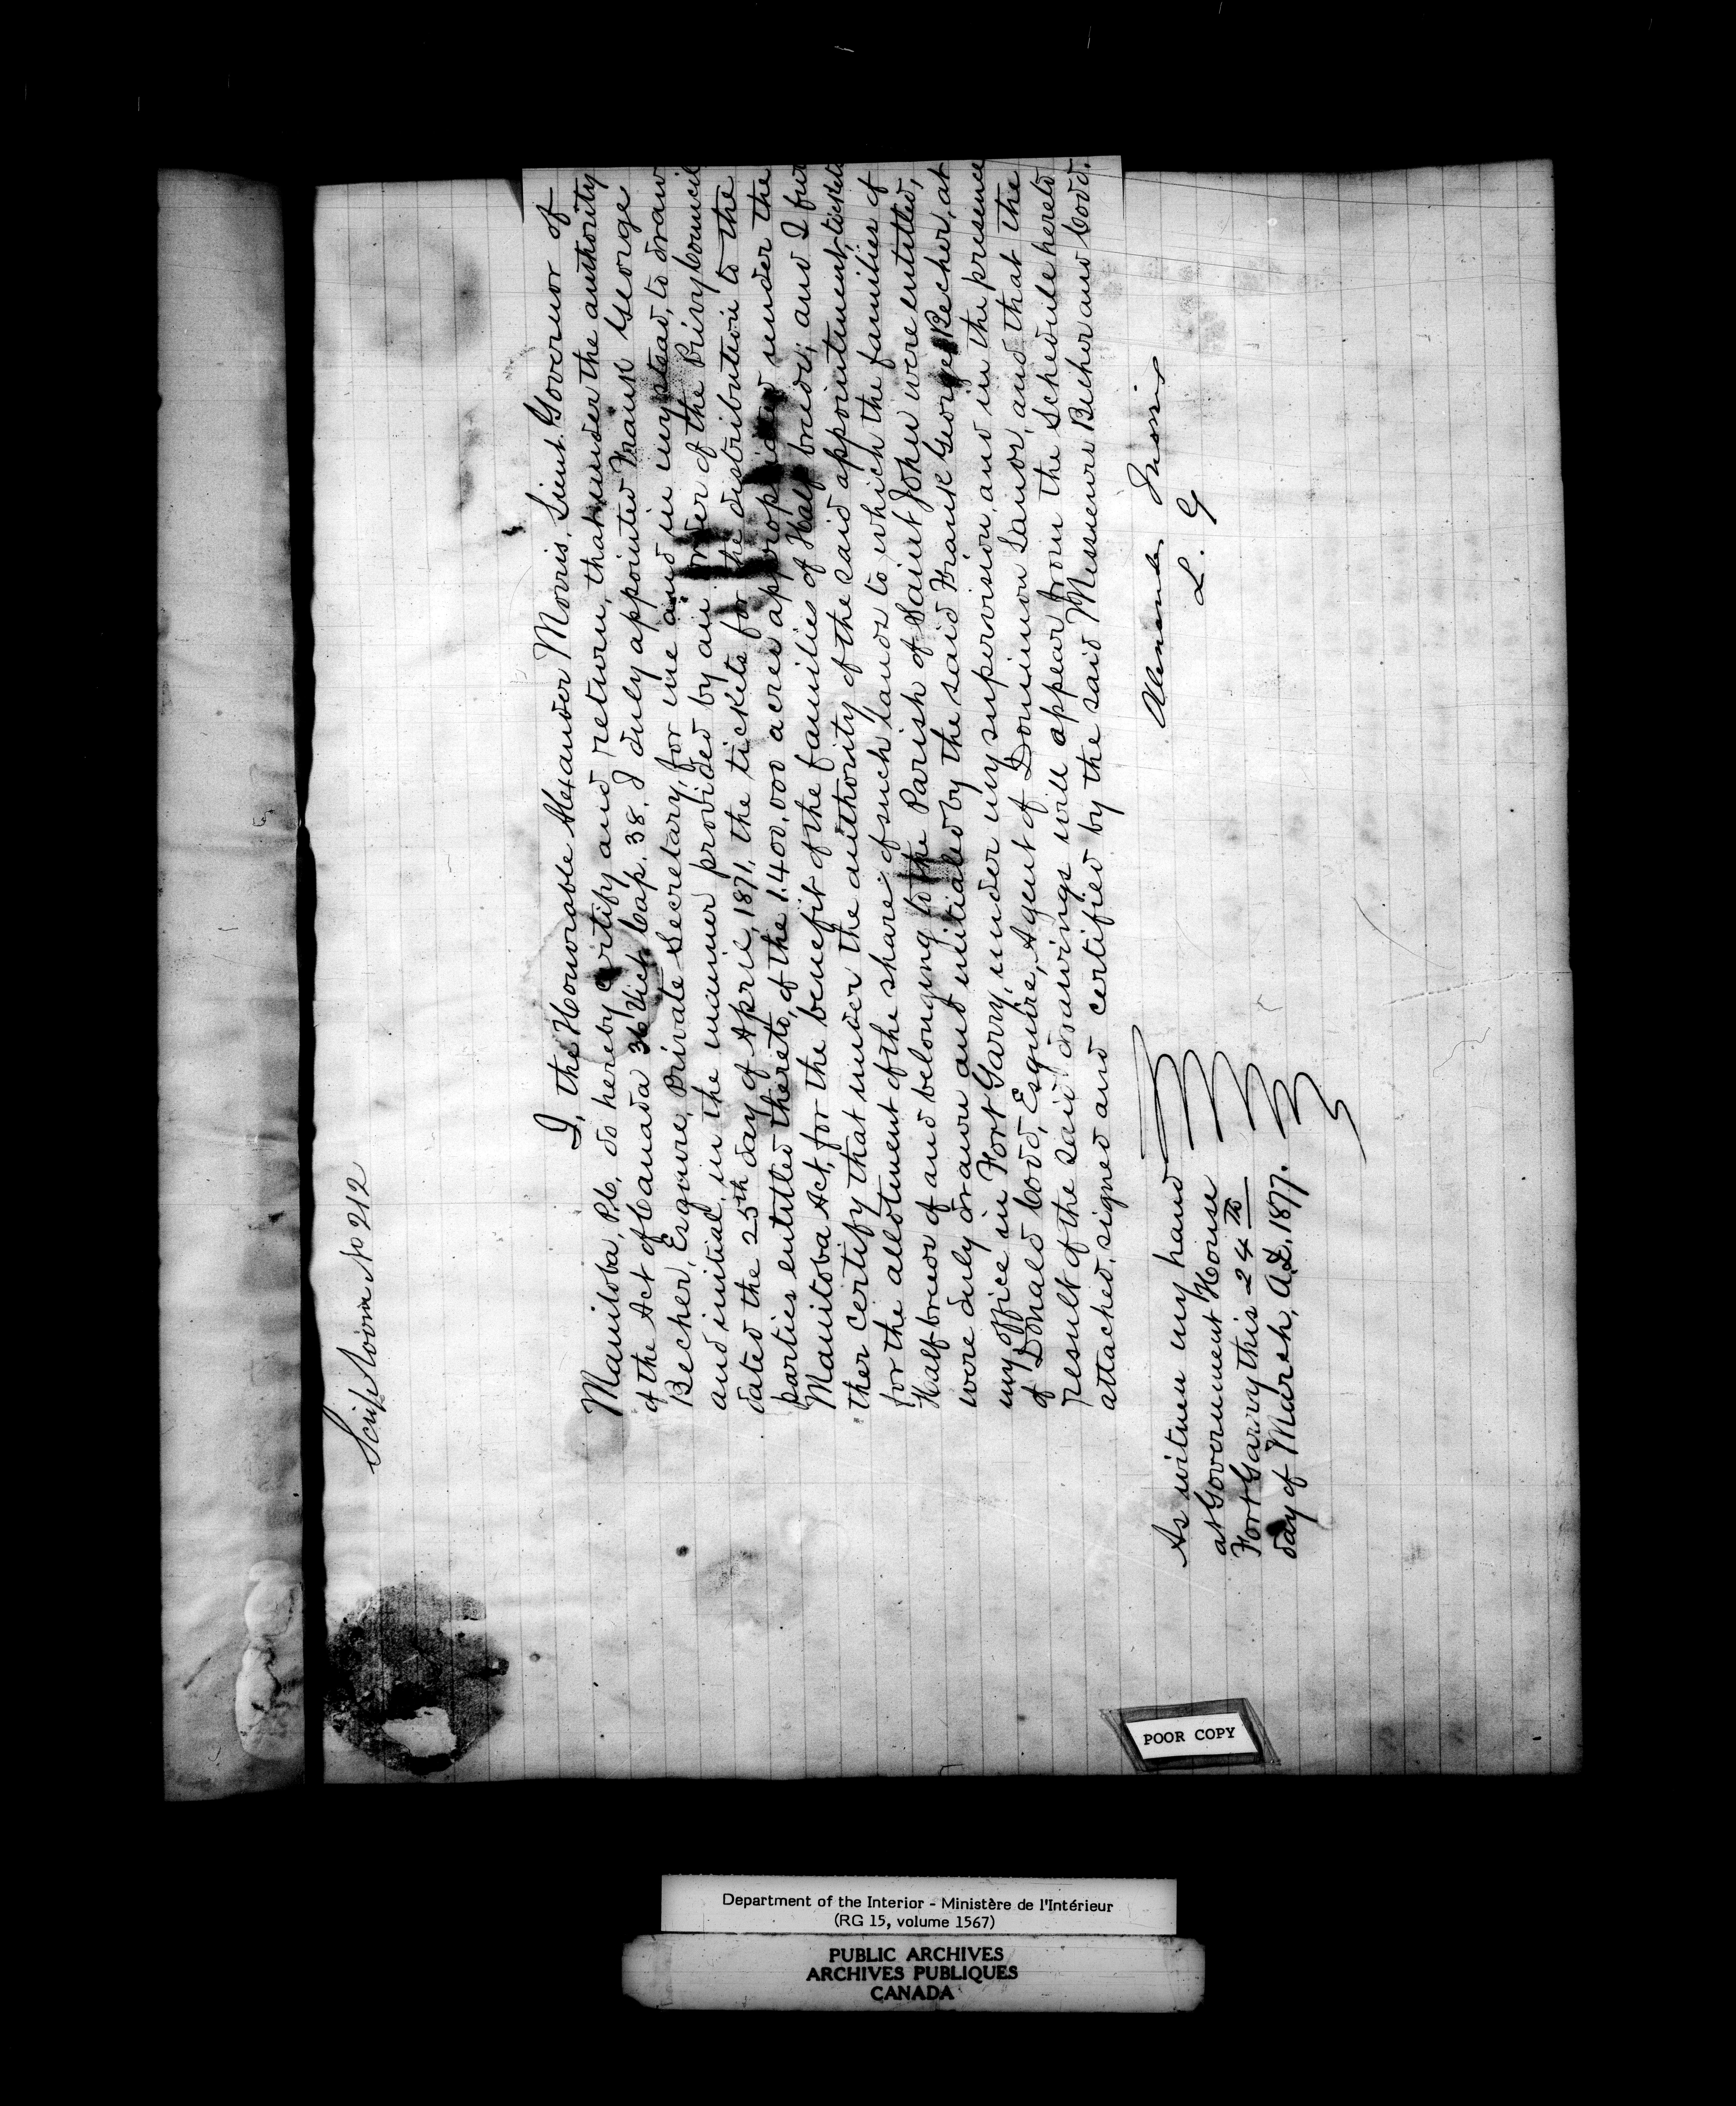 Scrip Room No 212
I, the Honorable Alexander Morris, Lieut. Governor of
Manitoba, P.C., do hereby certify and return, that under the authority
of the Act of Canada 36 Vict. Cap. 38. I duly appointed Frank George
Becher, Esquire, Private Secretary, for me and in my stead, to draw
and initial, in the manner provided by an Order of the Privy Council
dated the 25th day of April, 1871, the tickets for the distribution to the
parties entitled thereto, of the 1.400,000 acres appropriated under the
Manitoba Act, for the benefit of the families of Half breeds; and I fur
ther certify that under the authority of the said appointment, tickets
for the allotment of the share of such lands to which the families of
Half-breeds of and belonging to the Parish of Saint John were entitled,
were duly drawn and initialed by the said Frank George Becher, at
my office in Fort Garry, under my supervision, and in the presence
of Donald Codd, Esquire, Agent of Dominion Lands, and that the
result of the said drawings will appear from the Schedule hereto
attached, signed and certified by the said Messieurs Becher and Codd.
As witness my hand
at Government House
Fort Garry this 24th
day of March, A.D. 1877.
Alexander Morris
L. G
POOR COPY
Department of the Interior - Ministère de l'Intérieur
(RG 15, volume 1567)
PUBLIC ARCHIVES
ARCHIVES PUBLIQUES
CANADA